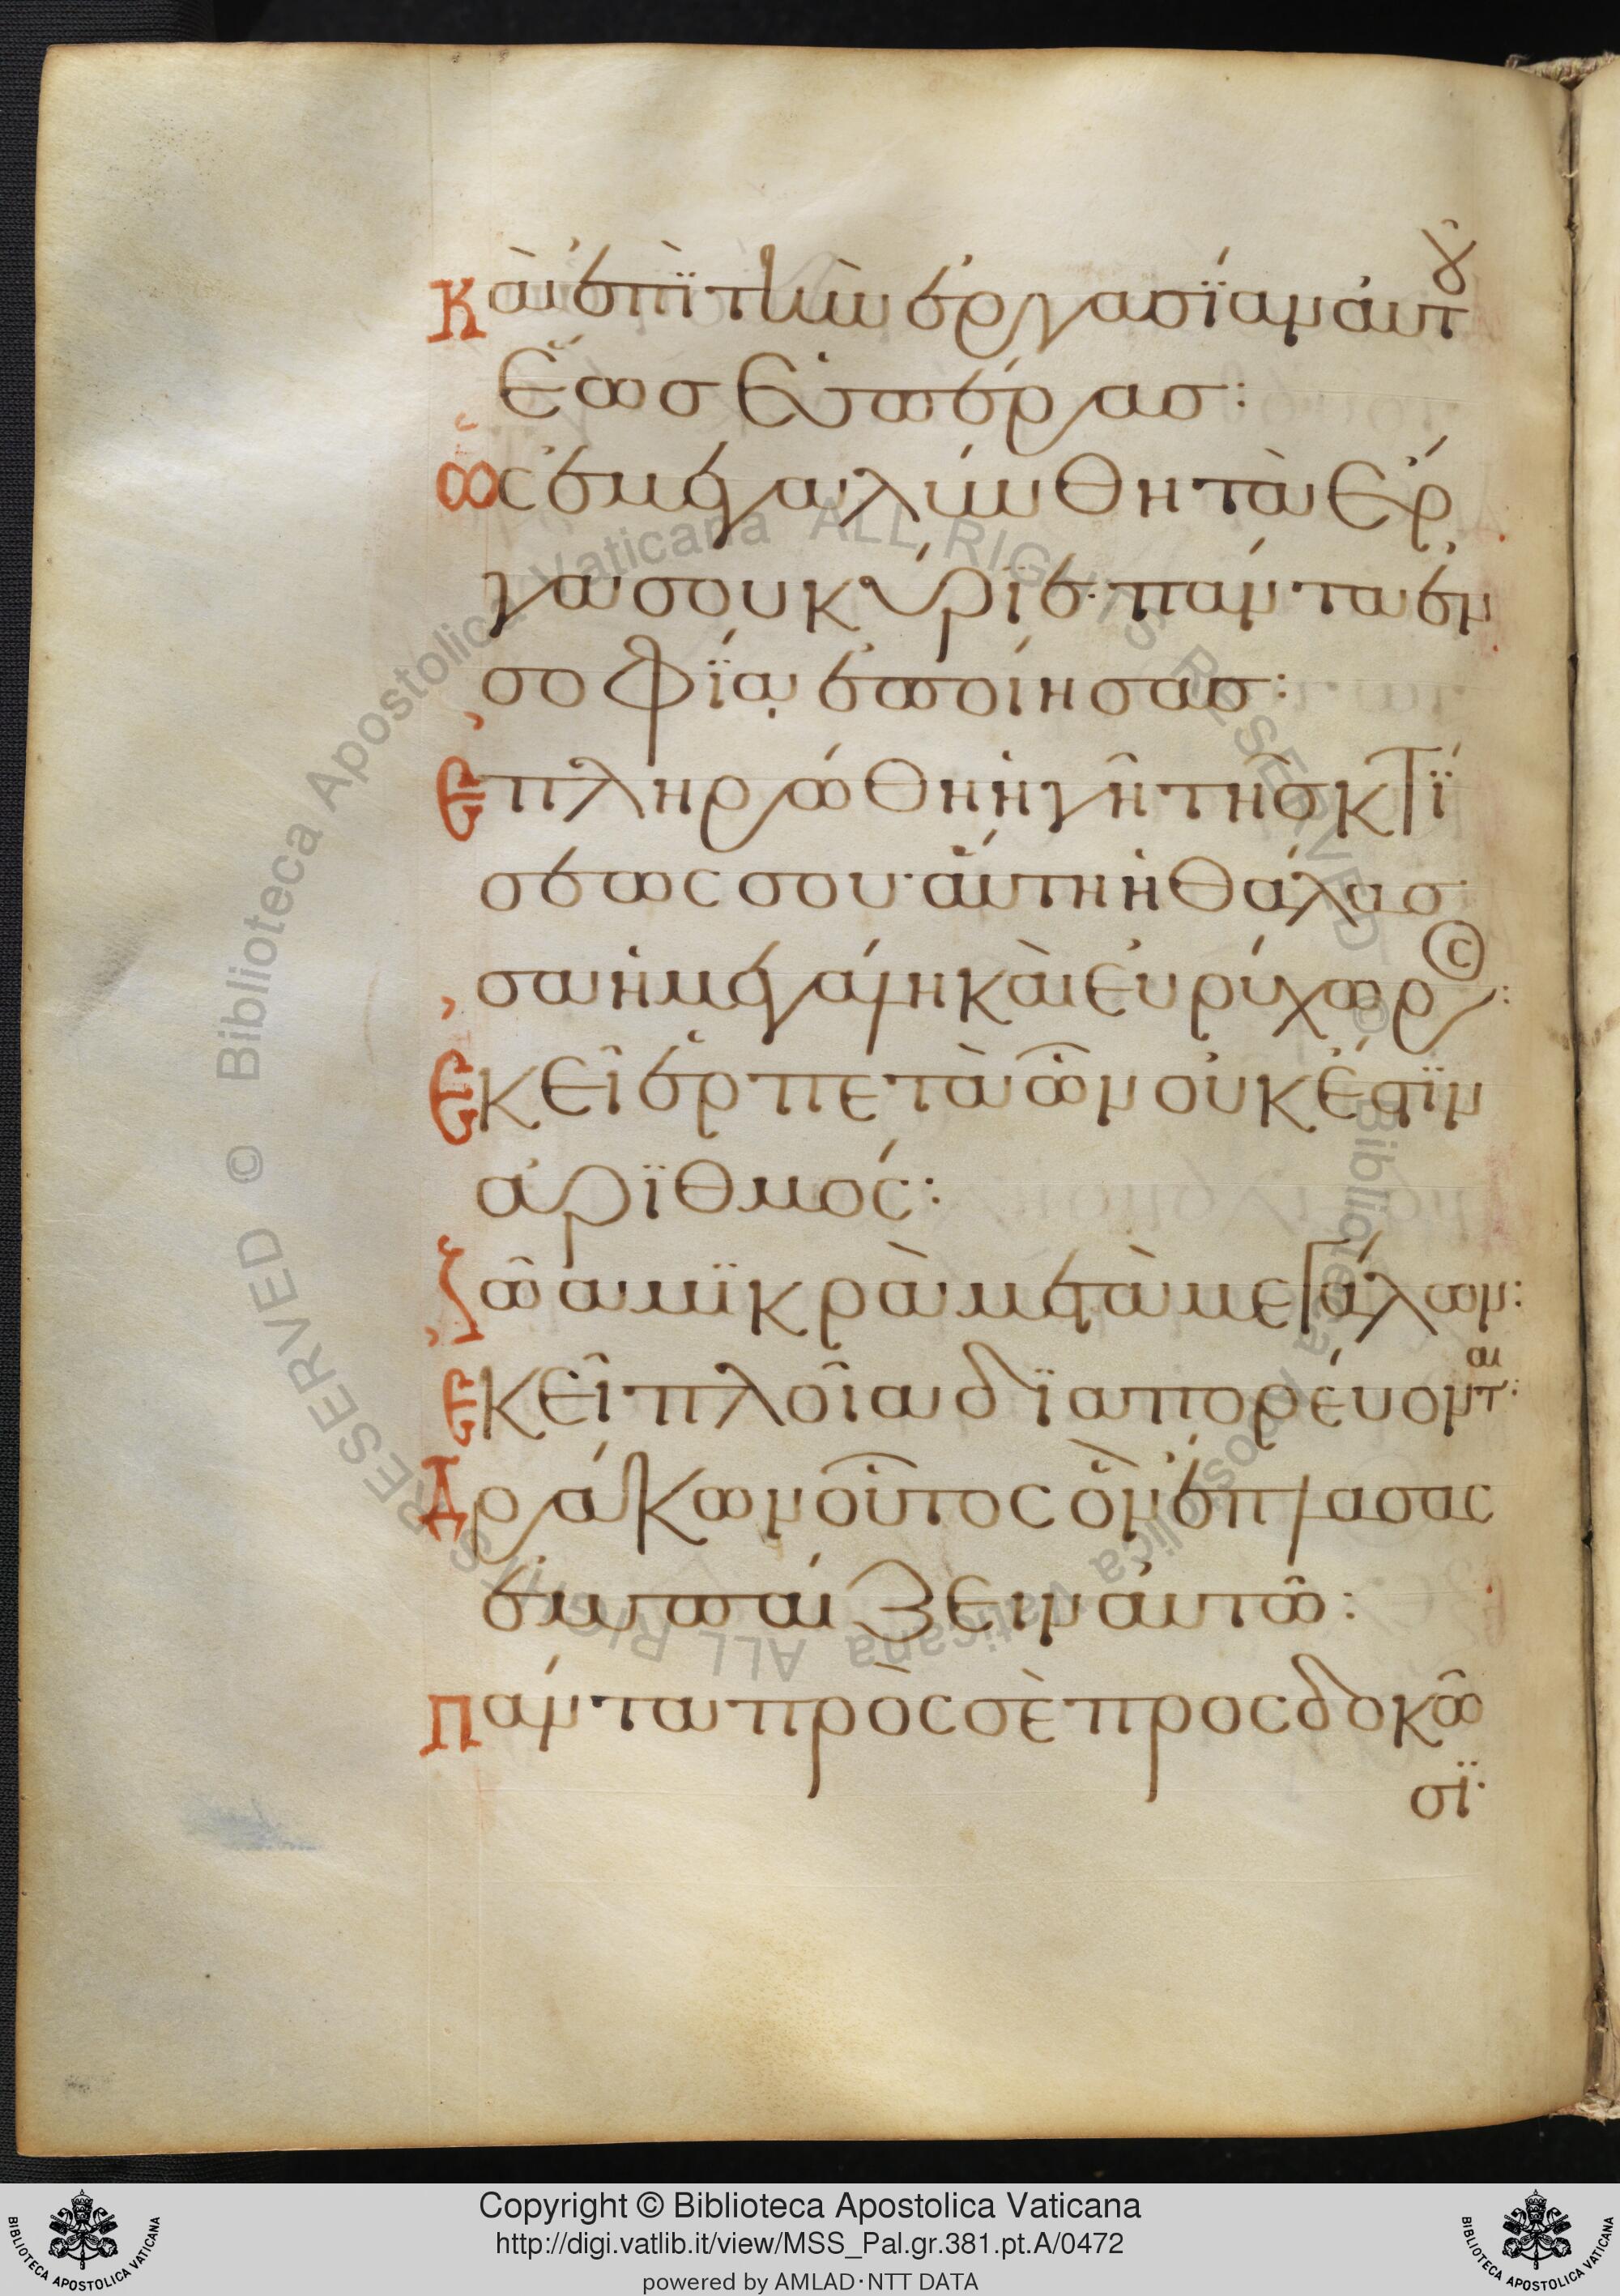 Καὶ ἐπὶ τὴν ἐργασΐαν ἀυτοῦ
Ἕωσ Ἑσπέρασ:
Ὡς ἐμεγαλύνθη τὰ Ἔρ
γα σου κύριε· πάντα ἐν
σοφΐᾳ ἐποίησασ:
Ἐπληρώθη ἡ γῆ τῆσ κτΐ
σεως σου· ἅυτη ἡ θάλασ
σα ἡ μεγάλη κὰι ἐυρύχωρος:
Ἐκεῖ ἑρπετὰ ὧν ὀυκ ἔστϊν
ἀρϊθμός:
Ζῶα μϊκρὰ μετὰ μεγάλων:
Ἐκεῖ πλοῖα δϊαπορέυονται:
Δράκων οὗτος ὃν ἔπλασας
ἐμπαίζειν ἀυτῶ:
Πάντα πρὸς σὲ προςδοκῶ
σϊ·
Copyright © Biblioteca Apostolica Vaticana
http://digi.vatlib.it/view/MSS_Pal.gr.381.pt.A/0472
powered by AMLAD·NTT DATA
BIBLIOTECA APOSTOLICA VATICANA
BIBLIOTECA APOSTOLICA VATICANA
© Biblioteca Apostolica Vaticana ALL RIGHTS RESERVED © Biblioteca Apostolica Vaticana ALL RIGHTS RESERVED